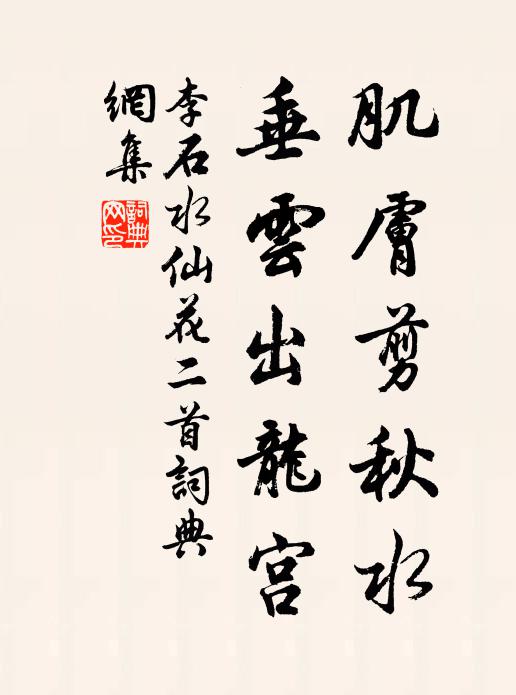 肌膚剪秋水
垂雲出龍宮
李石水仙花二首詞典
網集
詞典網印